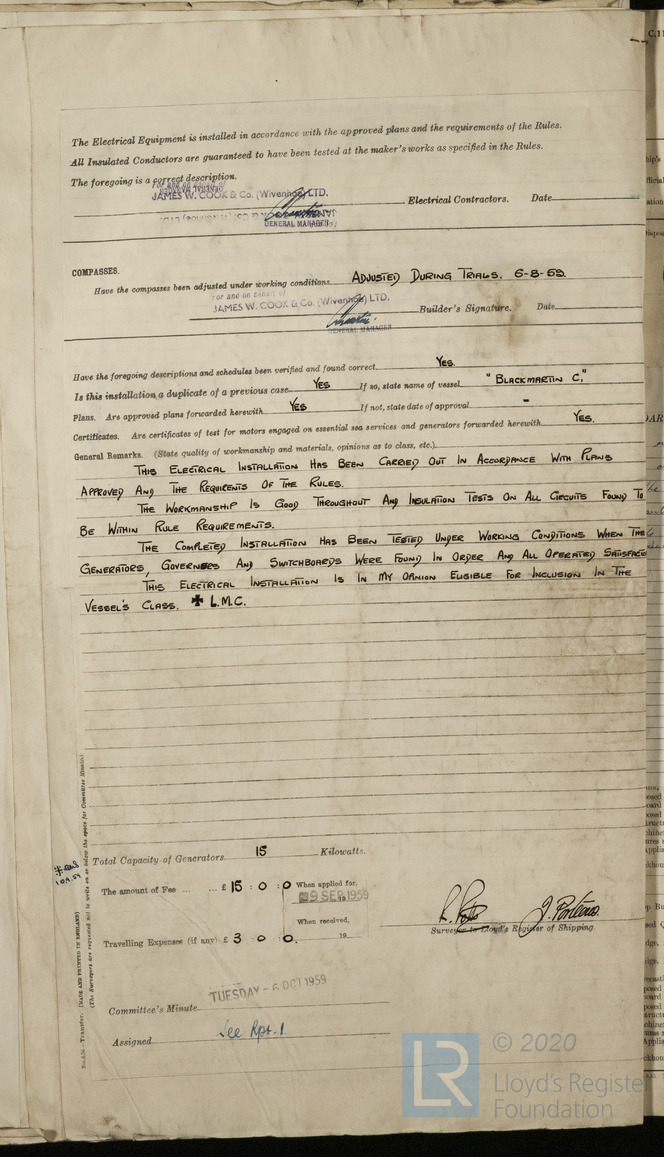 The Electrical Equipment is installed in accordance with the approved plans and the requirements of the Rules.
All Insulated Conductors are guaranteed to have been tested at the maker's works as specified in the Rules.
The foregoing is a correct description.
For and on behalf of
JAMES W. COOK & Co. (Wivenhoe) LTD.
Electrical Contractors. Date
GENERAL MANAGER
COMPASSES.
Have the compasses been adjusted under working conditions ADJUSTED DURING TRIALS. 6-8-59.
For and on behalf of
JAMES W. COOK & Co. (Wivenhoe) LTD.
Builder's Signature. Date
GENERAL MANAGER
Have the foregoing descriptions and schedules been verified and found correct YES.
Is this installation a duplicate of a previous case YES If so, state name of vessel "BLACKMARTIN C."
Plans. Are approved plans forwarded herewith YES If not, state date of approval -
Certificates. Are certificates of test for motors engaged on essential sea services and generators forwarded herewith YES.
General Remarks. (State quality of workmanship and materials, opinions as to class, etc.)
THIS ELECTRICAL INSTALLATION HAS BEEN CARRIED OUT IN ACCORDANCE WITH PLANS
APPROVED AND THE REQUIRENTS OF THE RULES.
THE WORKMANSHIP IS GOOD THROUGHOUT AND INSULATION TESTS ON ALL CIRCUITS FOUND TO
BE WITHIN RULE REQUIREMENTS.
THE COMPLETED INSTALLATION HAS BEEN TESTED UNDER WORKING CONDITIONS WHEN THE
GENERATORS, GOVERNERS AND SWITCHBOARDS WERE FOUND IN ORDER AND ALL OPERATED SATISFAC
THIS ELECTRICAL INSTALLATION IS IN MY OPINION ELIGIBLE FOR INCLUSION IN THE
VESSEL'S CLASS. ✠ L.M.C.
Total Capacity of Generators 15 Kilowatts.
The amount of Fee ... ... £ 15 : 0 : 0 When applied for,
9 SEP 1959
When received,
Travelling Expenses (if any) £ 3 : 0 : 0. 19
J. Porteous
Surveyor to Lloyd's Register of Shipping.
Committee's Minute TUESDAY - 6 OCT 1959
Assigned See Rpt. 1.
Transfer. (MADE AND PRINTED IN ENGLAND)
(The Surveyors are requested not to write on or below the space for Committee Minute.)
© 2020
LR
Lloyd's Register
Foundation